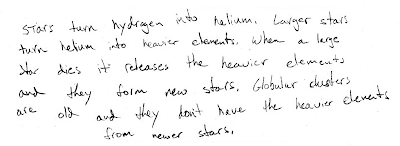 Stars turn hydrogen into helium. Larger stars
turn helium into heavier elements. When a large
star dies it releases the heavier elements
and they form new stars. Globular clusters
are old and they don't have the heavier elements
from newer stars.